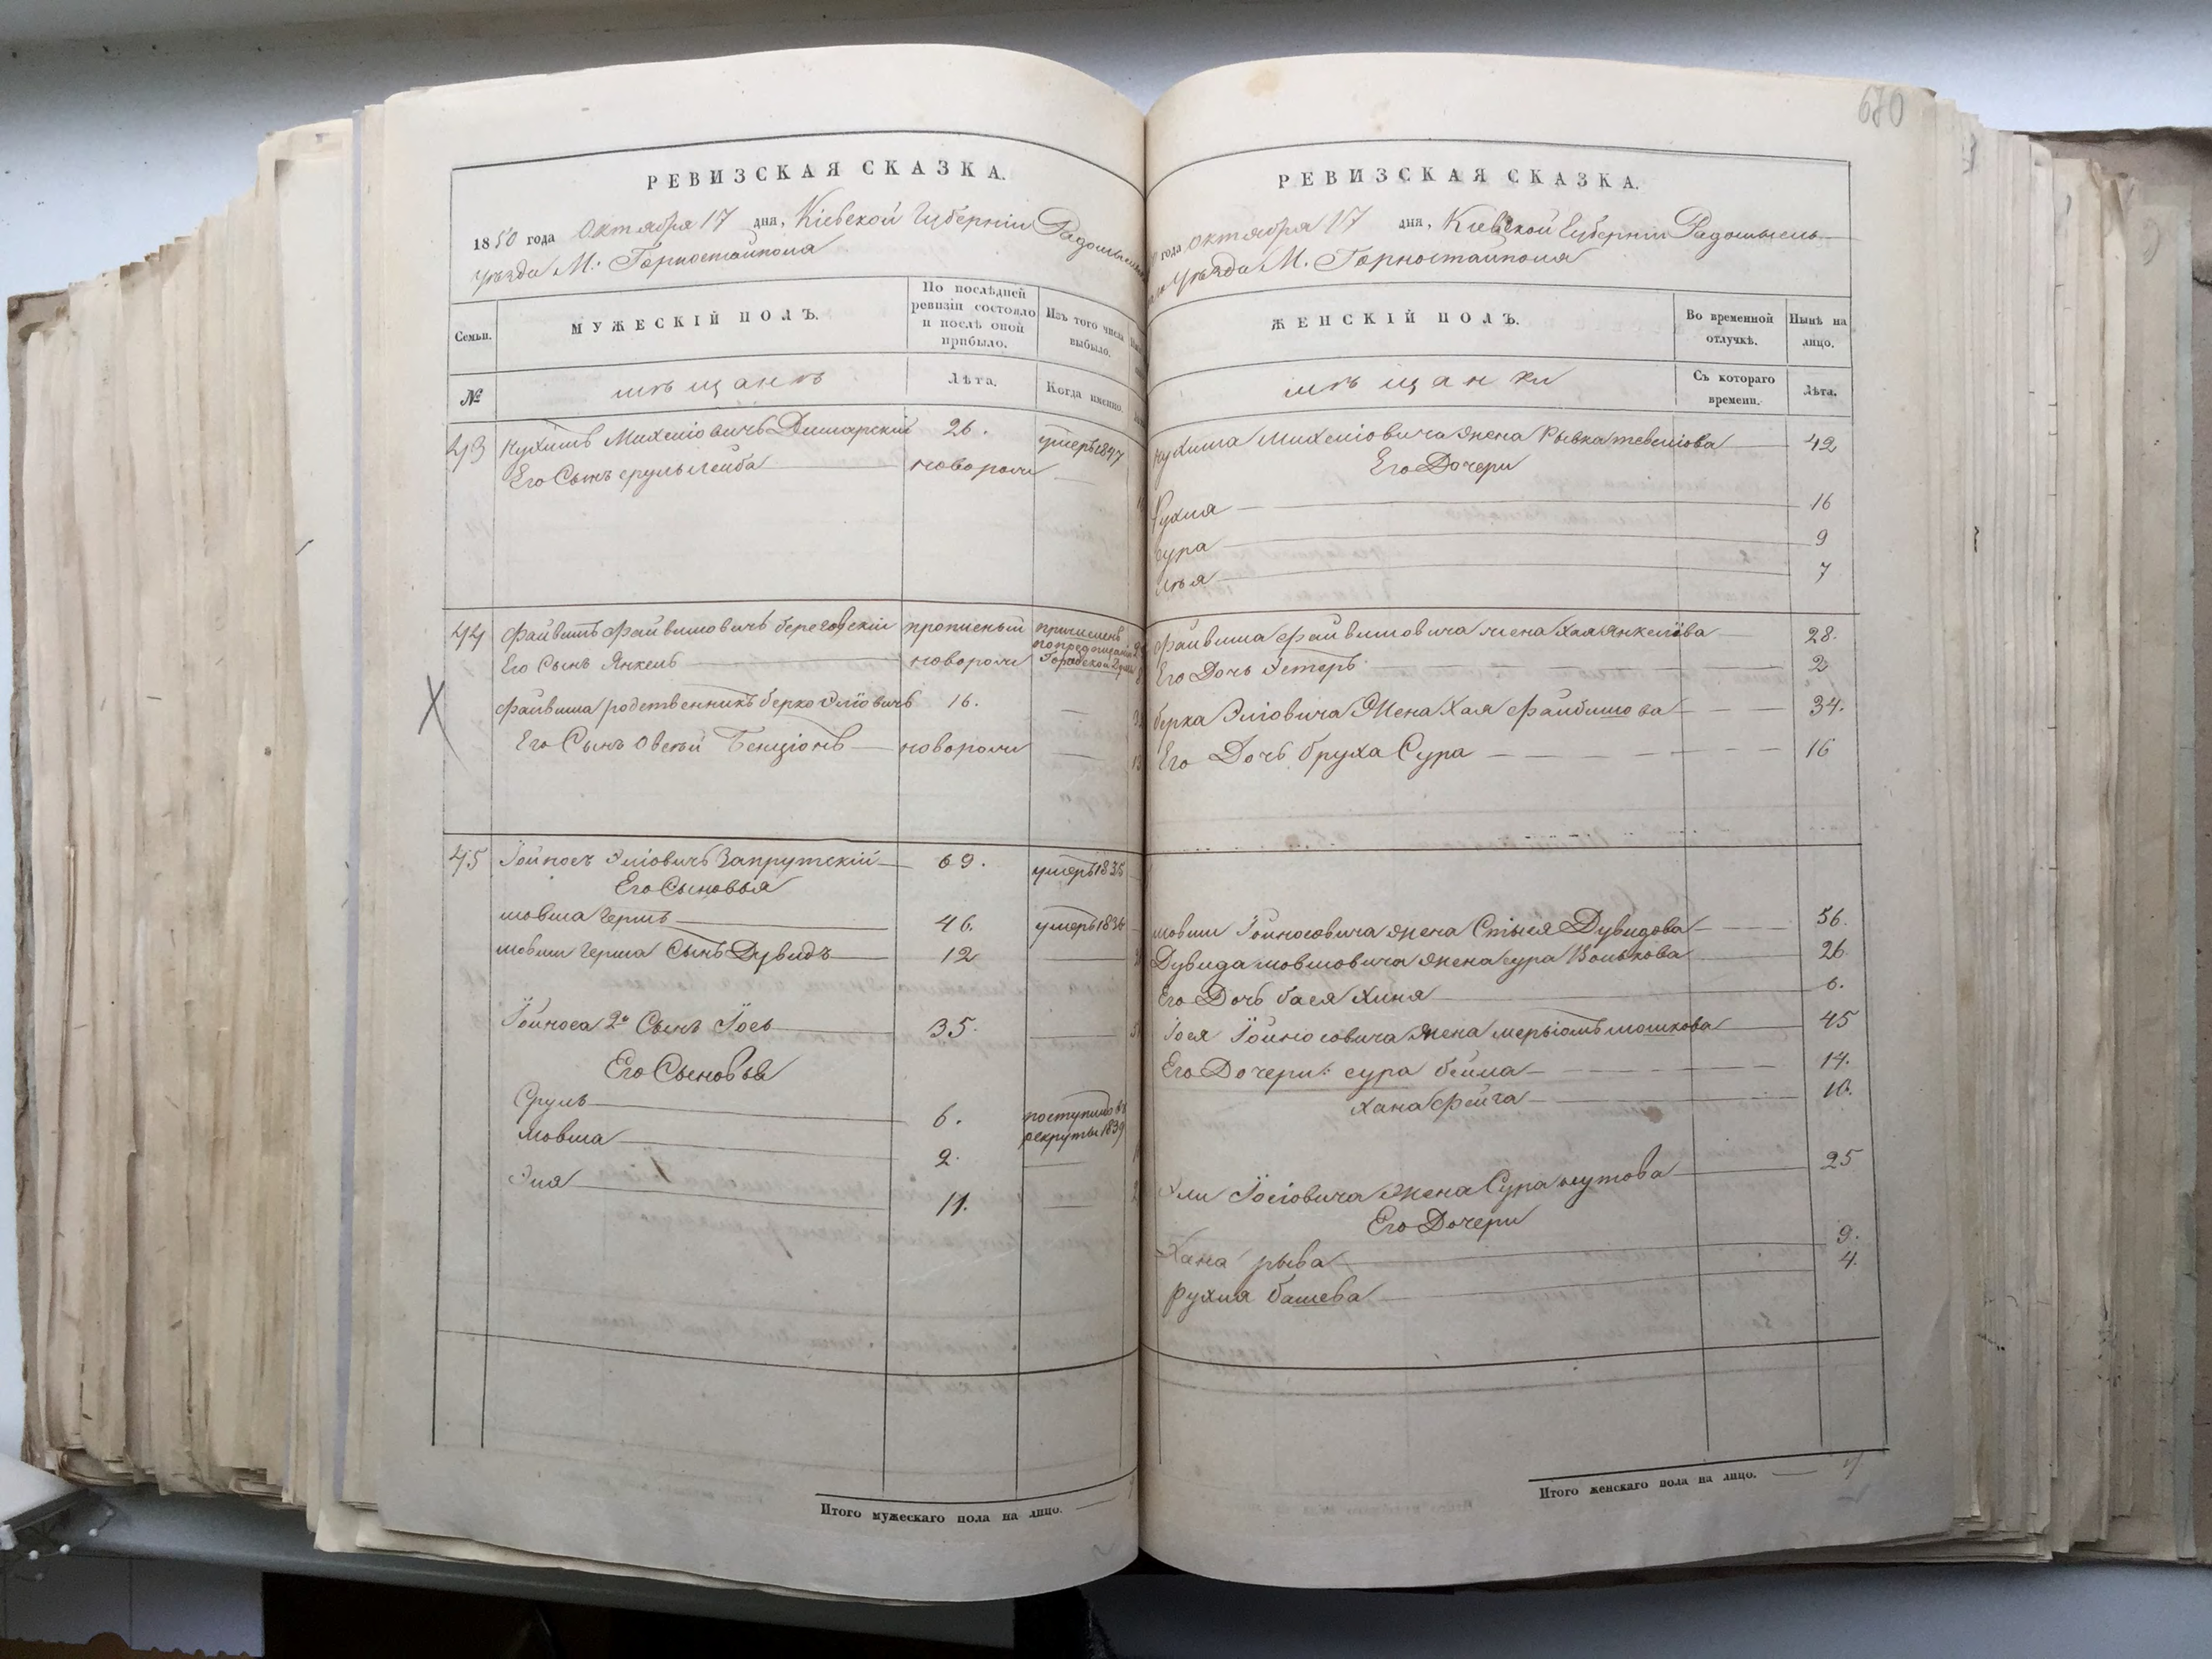 РЕВИЗСКАЯ СКАЗКА.
1850 года Октября 17 дня, Кіевской Губерніи Радомысль
уѣзда М. Горностайполя
Семьи.
МУЖЕСКІЙ ПОЛЪ.
По послѣдней ревизіи состояло и послѣ оной прибыло.
Изъ того числа выбыло.
№
мѣщанъ
Лѣта.
Когда именно.
43 Нухимъ Михеліовичъ 26. умеръ 1847
Его Сынъ Сруль Лейба новорож
44 Файвишъ Файвишовичъ береговскій прописный причисленъ
по предписанію
Его Сынъ Янкель новорож Городской Думы
Файвиша родственникъ Берко Эліовичъ 16.
Его Сынъ Овсей Бенціонъ новорож
45 Іойносъ Эліовичъ Запрутскій 69. умеръ 1835
Его Сыновья
мовша Гершъ 46. умеръ 1834
мовши Герша Сынъ Дувидъ 12
Іойноса 2й Сынъ Іось 35.
Его Сыновья
Сруль 6. поступилъ въ
рекруты 1839
Мовша 2.
Эля 11.
Итого мужескаго пола на лицо.
670
РЕВИЗСКАЯ СКАЗКА.
года Октября 17 дня, Кіевской Губерніи Радомысль
уѣзда М. Горностайполя
ЖЕНСКІЙ ПОЛЪ.
Во временной отлучкѣ.
Нынѣ на лицо.
мѣщанки
Съ котораго времени.
Лѣта.
Нухима Михеліовича жена Рывка 42
Его Дочери
Рухля 16
Сура 9
Лея 7
Файвиша Файвишовича жена Хая Янкеліова 28.
Его Дочь Эстеръ 2
берка Эліовича Жена Хая Файбишова 34.
Его Дочь Бруха Сура 16
мовши Іойносовича жена Стыся Дувидова 56.
Дувида мовшовича жена сура Волькова 26
Его Дочь бася Хиня 6.
Іося Іойносовича жена мерьіамъ мошкова 45
Его Дочери: сура бейла 14.
Хана Фейга 10.
Эли Іосіовича жена Сура нутова 25
Его Дочери
Хана рыва 9.
рухля башева 4.
Итого женскаго пола на лицо.